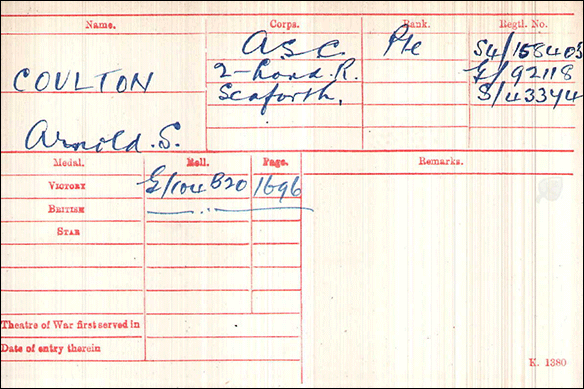 Name. Corps. Rank. Regtl. No.
A.S.C. Pte S4/158405
COULTON 2-Lond.R. G/92118
Seaforth. S/43344
Arnold.S.
Medal. Roll. Page. Remarks.
VICTORY G/104B20 1696
BRITISH
STAR
Theatre of War first served in
Date of entry therein
K. 1380